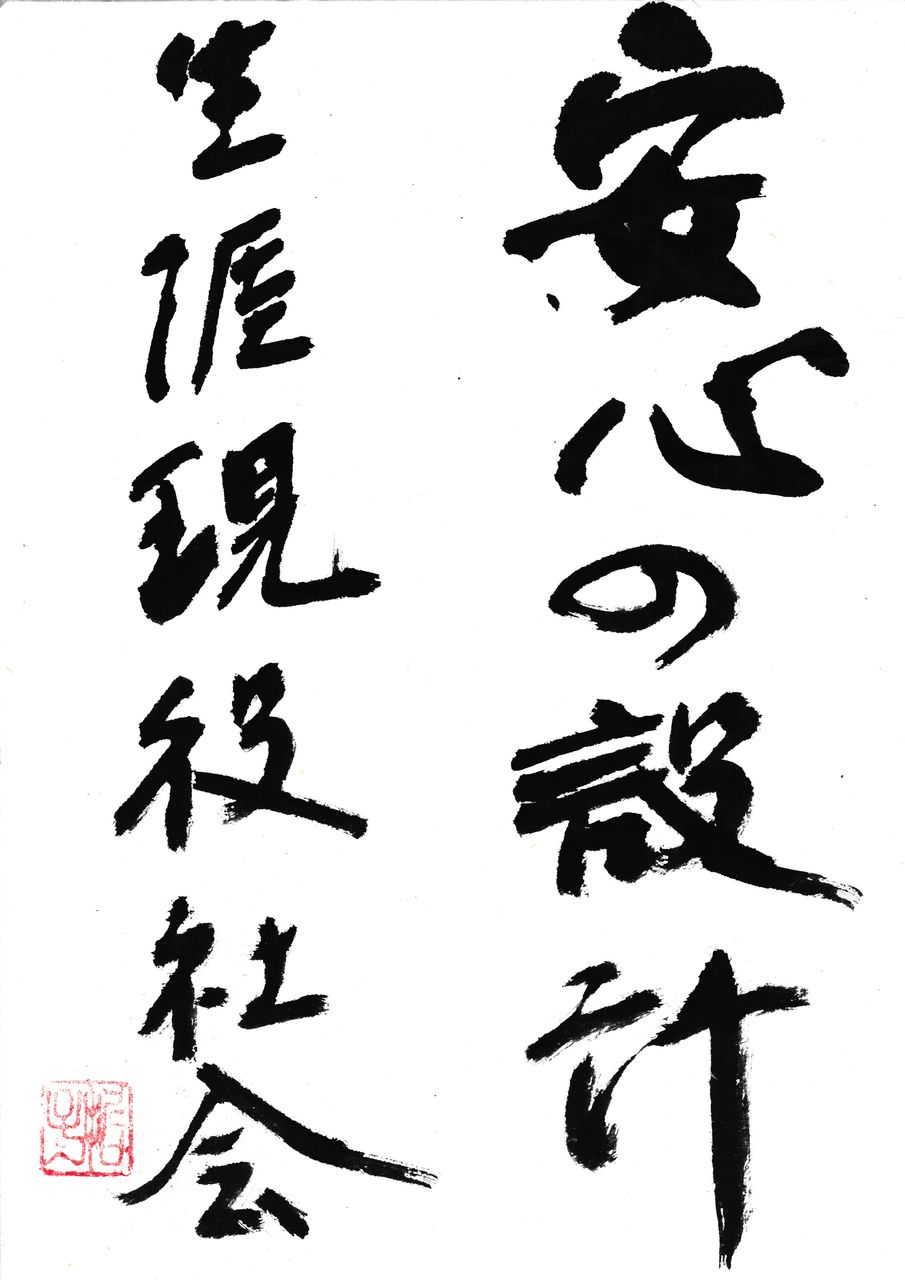 安心の設計
生涯現役社会